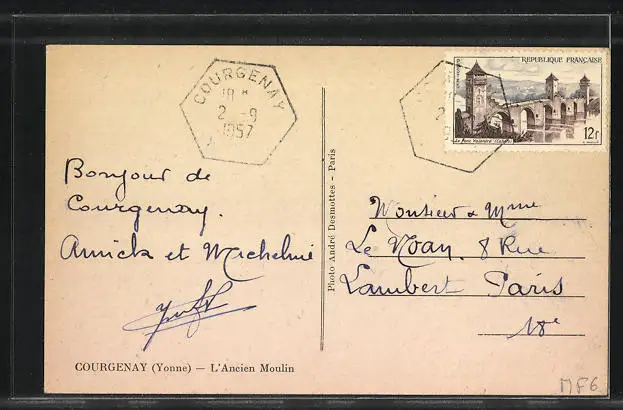 COURGENAY
18 H
2 - 9
1957
REPUBLIQUE FRANÇAISE
Le Pont Valentré (Cahors)
12f
Bonjour de
Courgenay.
Annick et Micheline
Photo André Desmottes - Paris
Monsieur & Mme
Le Moan. 8 Rue
Lambert Paris
18e
COURGENAY (Yonne) — L'Ancien Moulin
MF6